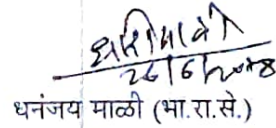 26/6/2018
धनंजय माळी (भा.रा.से.)